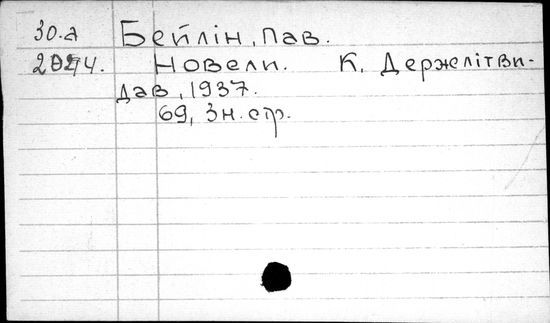 30.а Бейлін, Пав.
Новели. К. Держлітви-
дав, 1937.
69, 3н. стр.